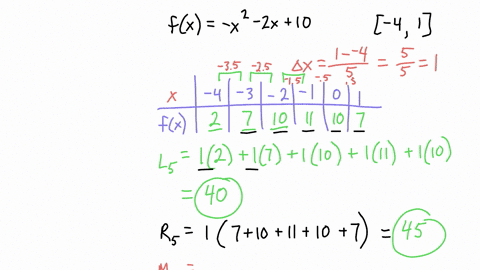 f(x) = -x² -2x+10 [-4, 1]
-3.5 -2.5 -1.5 -.5 .5 Δx = (1--4)/5 = 5/5 = 1
x | -4 | -3 | -2 | -1 | 0 | 1
f(x) | 2 | 7 | 10 | 11 | 10 | 7
L₅ = 1(2) + 1(7) + 1(10) + 1(11) + 1(10)
= 40
R₅ = 1 (7+10+11+10+7) = 45